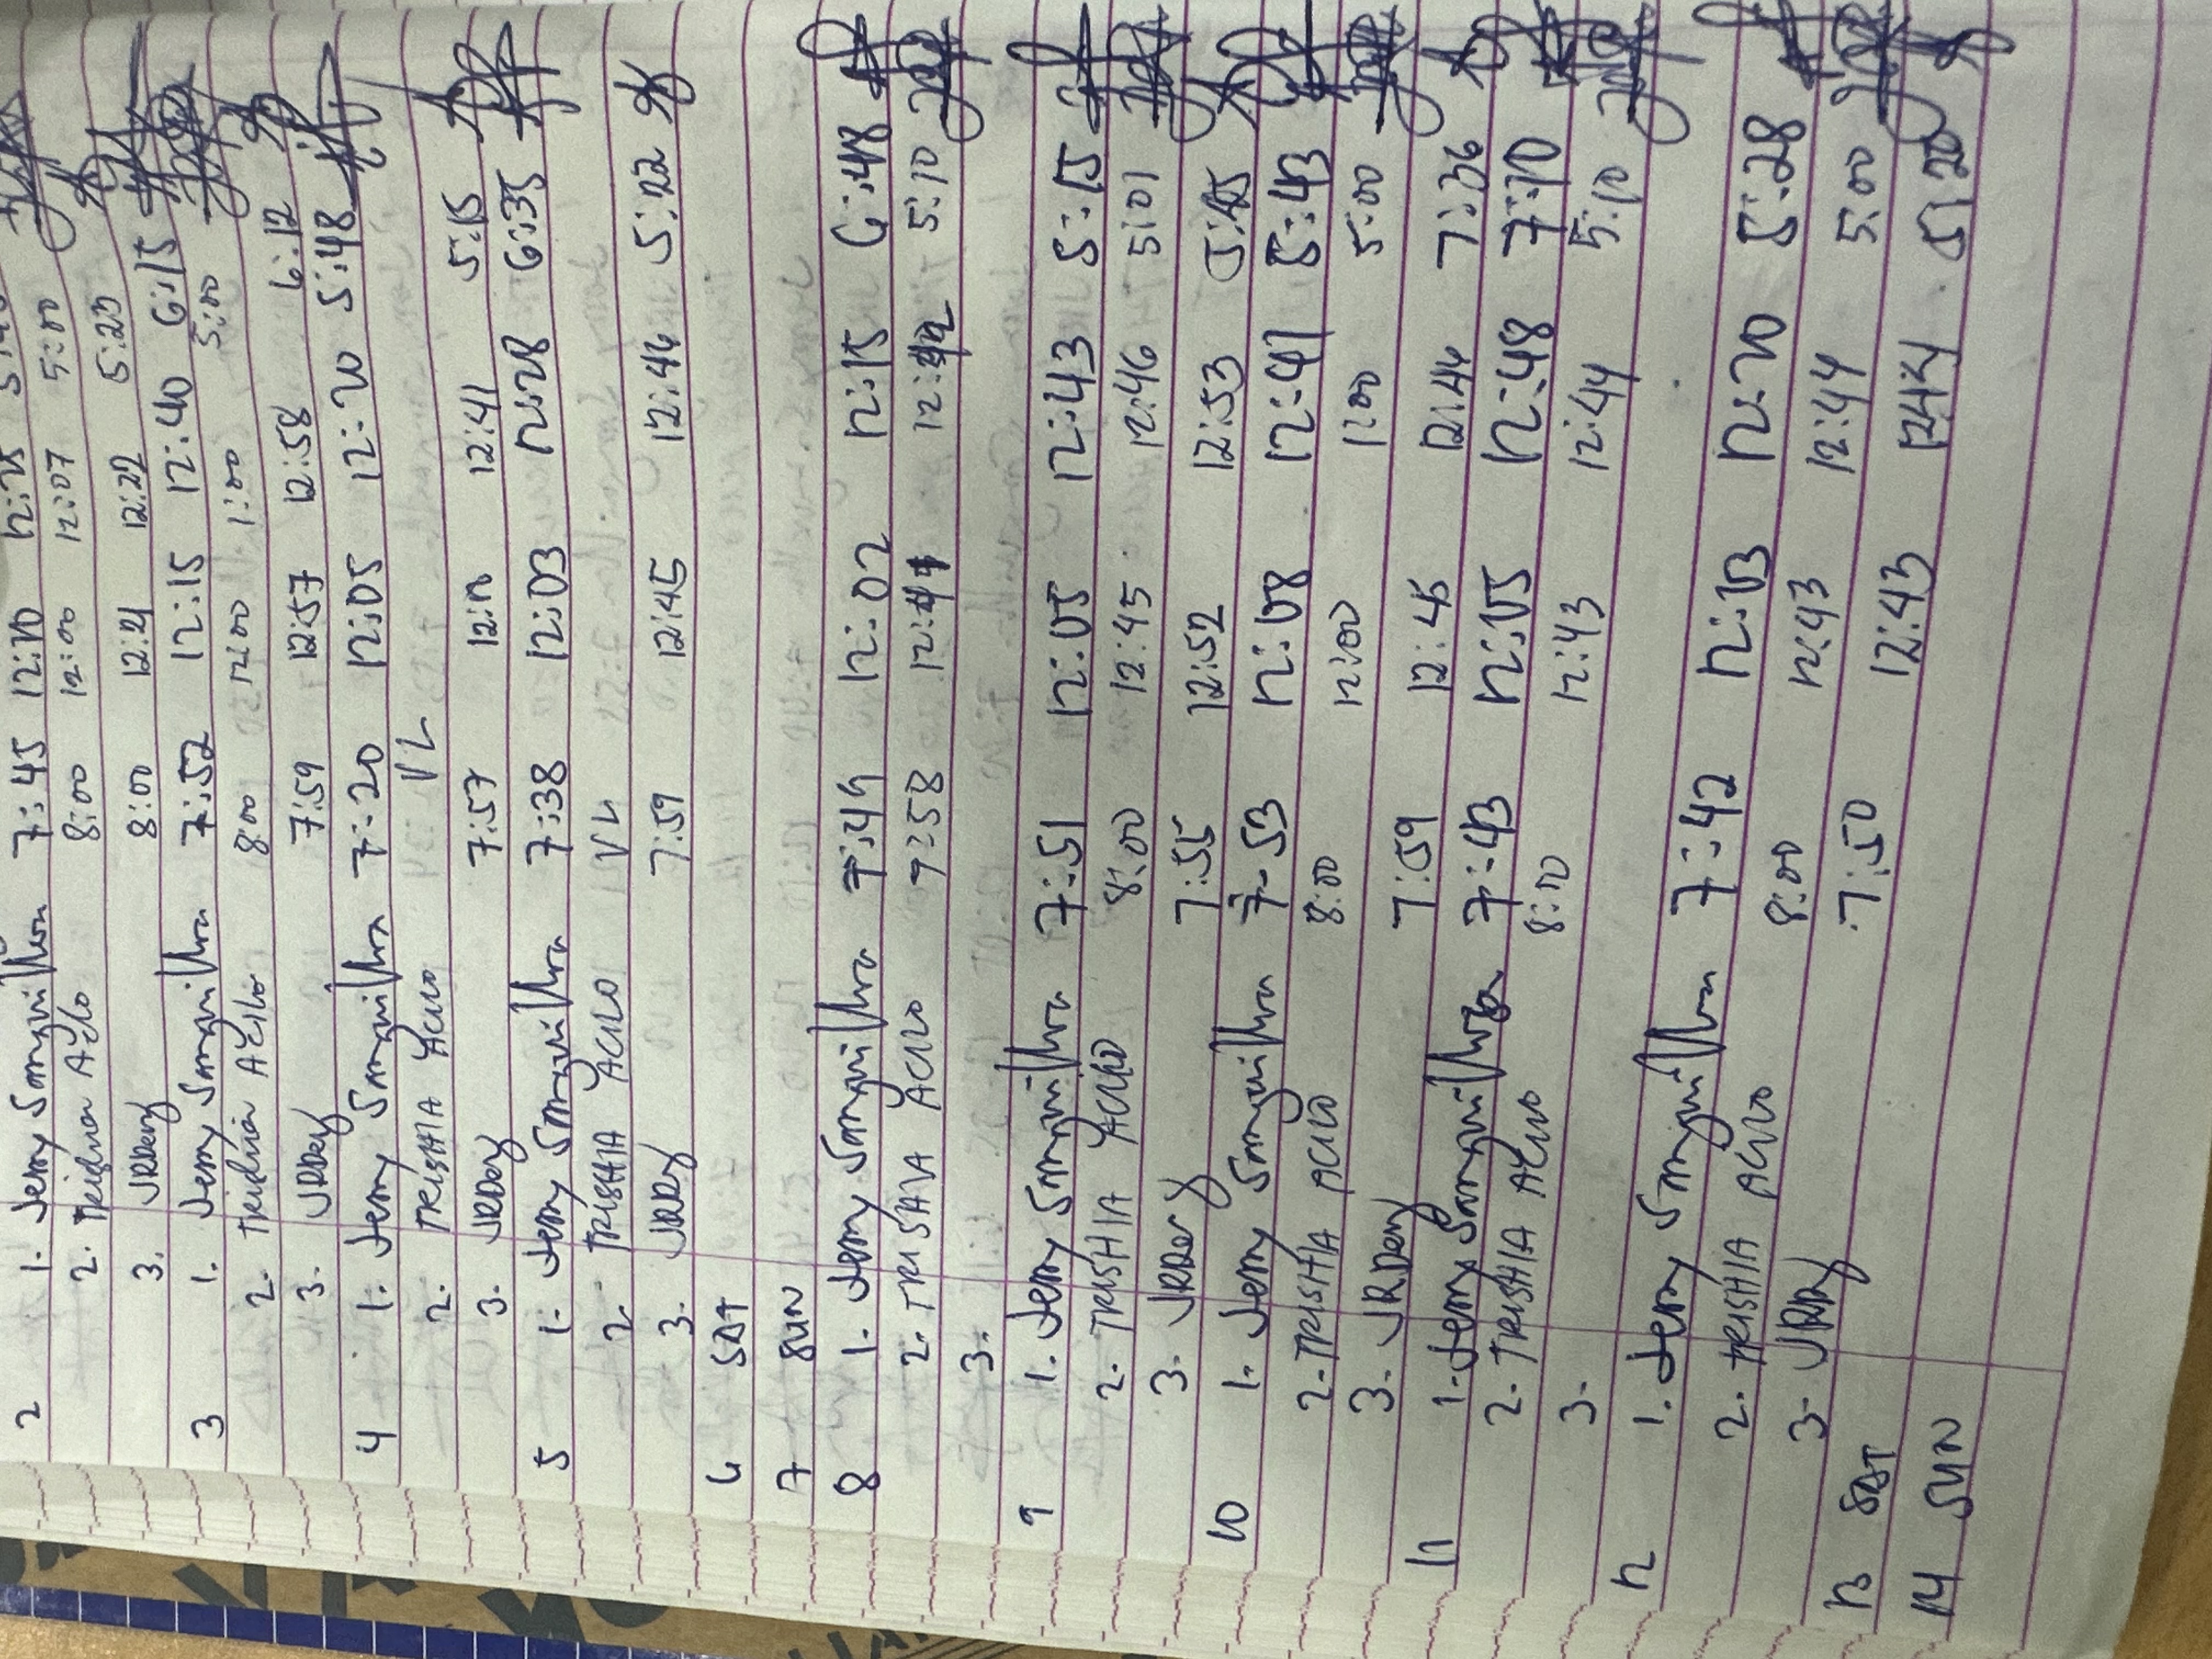 2 1. Jerry 7:45 12:10 12:25
2. Trishia Acilo 8:00 12:00 12:07 5:00
3. JRDey 8:00 12:21 12:22 5:23
3 1. Jerry 7:52 12:15 12:40 6:15
2. Trishia Acilo 8:00 12:00 1:00 5:00
3. JRDey 7:59 12:57 12:58 6:12
4 1. Jerry 7:20 12:05 12:20 5:48
2. TRISHIA ACILO VL
3. JRDey 7:57 12:41 5:15
5 1. Jerry 7:38 12:03 12:28 6:35
2. TRISHIA ACILO VL
3. JRDey 7:59 12:45 12:46 5:22
6 SAT
7 SUN
8 1. Jerry 7:49 12:02 12:15 6:48
2. TRISHIA ACILO 7:58 12:41 12:42 5:10
3.
9 1. Jerry 7:51 12:05 12:43 5:15
2. TRISHIA ACILO 8:00 12:45 12:46 5:01
3. JRDey 7:55 12:52 12:53
10 1. Jerry 7:53 12:08 12:41 5:43
2. TRISHIA ACILO 8:00 12:00 1:00 5:00
3. JRDey 7:59 12:45 12:46 7:36
11 1. Jerry 7:43 12:05 12:48 7:10
2. TRISHIA Acilo 8:00 12:43 12:44 5:10
3.
12 1. Jerry 7:42 12:03 12:20 5:28
2. TRISHIA ACILO 8:00 12:43 12:44 5:00
3. JRDey 7:50 12:43 12:44 5:20
13 SAT
14 SUN